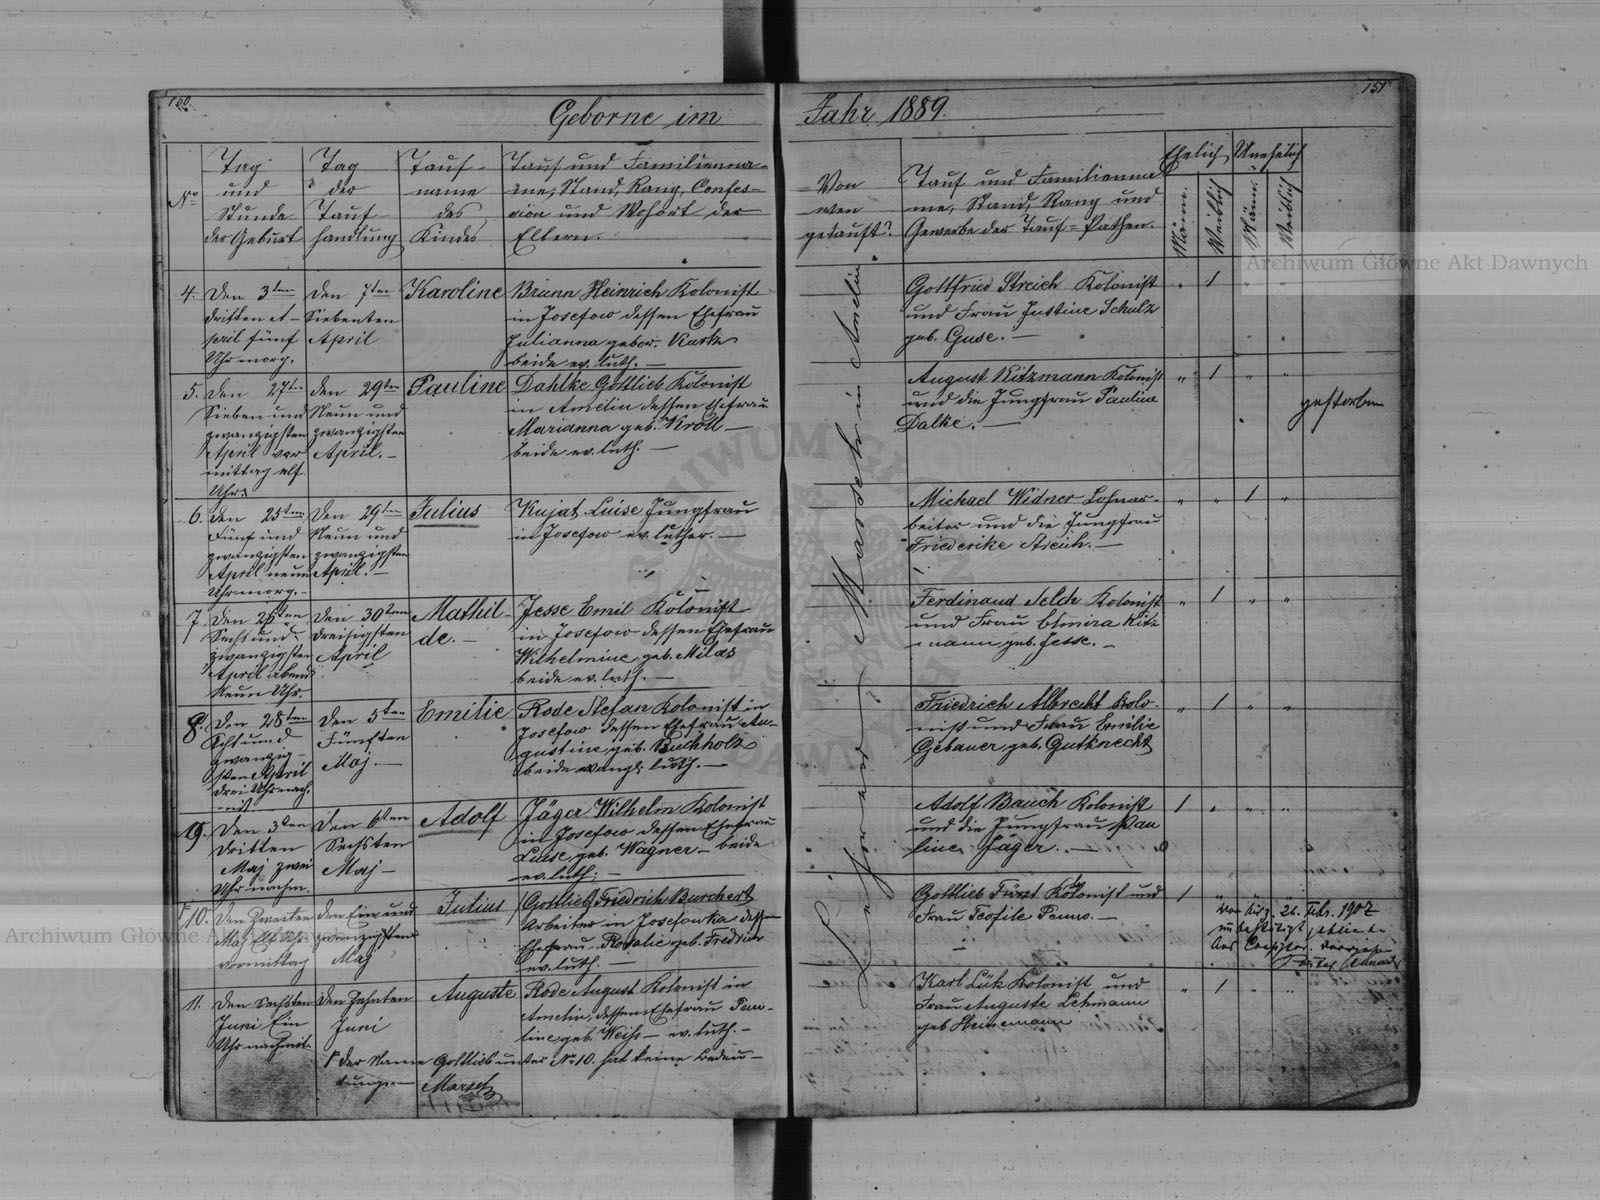 150.
Geborne im
No
Tag
und
Stunde
der Geburt
Tag
der
Tauf-
handlung
Tauf-
name
des
Kindes
Tauf und Familienna-
me, Stand, Rang, Confes-
sion und Wohort der
Eltern.
4. Den 3ten
dritten A-
pril fünf
Uhr morg.
Den 7ten
Siebenten
April
Karoline
Brunn Heinrich Kolonist
in Josefow dessen Ehefrau
Julianna gebor. Kurtz
beide ev. luth. —
5. Den 27ten
Sieben und
zwanzigsten
April vor
mittag elf
Uhr.
den 29ten
Neun und
zwanzigsten
April. —
Pauline
Dahlke Gottlieb Kolonist
in Amelin dessen Ehefrau
Marianna geb. Kroll —
beide ev. luth. —
6. Den 25ten
Fünf und
zwanzigsten
April neun
Uhr morg. —
Den 29ten
Neun und
zwanzigsten
April. —
Julius
Kujat Luise Jungfrau
in Josefow ev. luther. —
7. Den 26ten
Sechs und
zwanzigsten
April abend
Neun Uhr.
Den 30ten
Dreisigsten
April
Mathil-
de. —
Jesse Emil Kolonist
in Josefow dessen Ehefrau
Wilhelmine geb. Milas
beide ev. luth. —
8. Den 28ten
Acht und
zwanzig-
sten April
drei Uhr nach.
mit
Den 5ten
Fünften
Maj. —
Emilie
Rode Stefan Kolonist in
Josefow dessen Ehefrau Au-
gustine geb. Buchholz
beide evangl. luth. —
9. Den 3ten
Dritten
Maj zwei
Uhr nachm.
Den 6ten
Sechsten
Maj —
Adolf
Jäger Wilhelm Kolonist
in Josefow dessen Ehefrau
Luise geb. Wagner — beide
ev. luth. —
10. Den Zweiten
Maj elf Uhr
vormittag
den Ein und
zwanzigsten
Maj
Julius
Gottlieb Friedrich Burchert
Arbeiter in Josefowka dess-
Ehefrau Rosalie geb. Fredrich
ev. luth. —
11. Den Sechsten
Juni Ein
Uhr nachmit.
den Zehnten
Juni
Auguste
Rode August Kolonist in
Amelin, dessen Ehefrau Pau-
line geb. Weiss — ev. luth. —
der Name Gottlieb unter No 10. hat keine Bedeu-
tung. —
Marsch
151
Jahr 1889.
Von
wen
getauft?
Tauf und Familienna
me, Stand, Rang und
Gewerbe der Tauf=Pathen.
Ehelich
Unehelich
Männ.
Weiblich
Männ.
Weiblich
Marsch in Amelin
Gottfried Streich Kolonist
und Frau Justine Schulz
geb. Guse. —
" 1 " "
August Kitzmann Kolonist
und die Jungfrau Pauline
Dalke. —
" 1 " "
gestorben
Michael Widner Losmar-
beiter und die Jungfrau
Friederike Streich. —
" " 1 "
Ferdinand Selch Kolonist
und Frau Elmira Kitz
mann geb. Jesse. —
" 1 " "
Friedrich Albrecht Kolo-
nist und Frau Emilie
Gebauer geb. Gutknecht
" 1 " "
Adolf Bauch Kolonist
und die Jungfrau Pau
line Jäger. —
1 " " "
Gottlieb Fürst Kolonist und
Frau Teofile Penno. —
1 "
26. Febr. 1907
Karl Lük Kolonist und
Frau Auguste Lehmann
geb Heinemann
" 1 " "
Archiwum Główne Akt Dawnych
Archiwum Główne Akt Dawnych